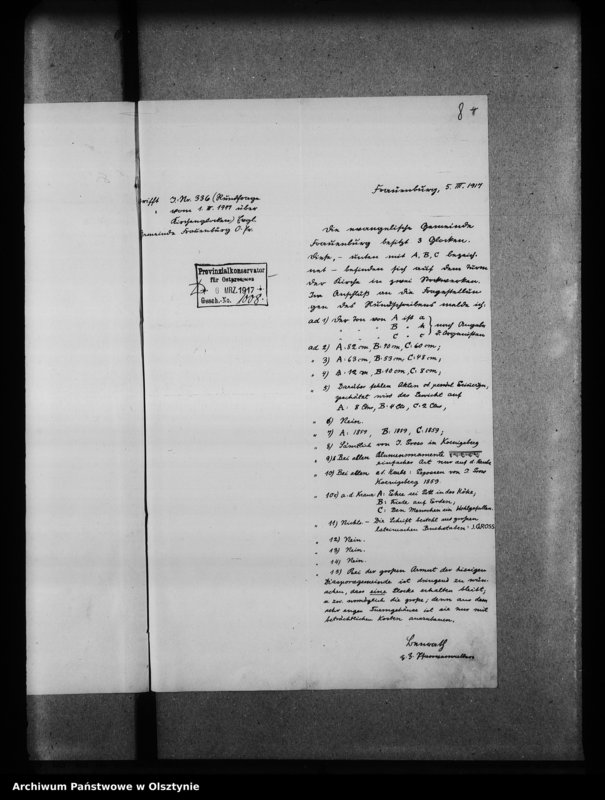 8
Frauenburg, 5. III. 1917
J.-Nr. 336 (Rundfrage
vom 1. II. 1917 über
Kirchenglocken) Evgl.
Gemeinde Frauenburg O.-Pr.
Provinzialkonservator
für Ostpreussen
6 MRZ. 1917
Gesch.-No. 1008.
Die evangelische Gemeinde
Frauenburg besitzt 3 Glocken.
Diese, - unten mit A, B, C bezeich-
net - befinden sich auf dem Turm
der Kirche in zwei Stockwerken.
Im Anschluß an die Fragestellun-
gen des Rundschreibens melde ich:
ad 1) Der Ton von A ist a
" " " B " h
" " " C " c
nach Angabe
d. Organisten
ad 2) A: 82 cm, B: 70 cm, C: 60 cm;
" 3) A: 63 cm, B: 53 cm, C: 48 cm;
" 4) A: 12 cm, B: 10 cm, C: 8 cm;
" 5) Darüber fehlen Akten
geschätzt wird das Gewicht auf
A: 8 Ctr, B: 4 Ctr, C: 2 Ctr,
" 6) Nein.
" 7) A: 1859, B: 1859, C: 1859;
" 8) Sämtlich von J. Gross in Koenigsberg
" 9) Bei allen Blumenornamente
einfacher Art nur auf d. Haube
" 10) Bei allen a. d. Haube: Gegossen von J. Gross
Koenigsberg 1859.
" 10c) a. d. Kranz A: Ehre sei Gott in der Höhe,
B: Friede auf Erden,
C: Den Menschen ein Wohlgefallen.
" 11) Nichts. - Die Schrift besteht aus großen
lateinischen Buchstaben: J. GROSS
" 12) Nein.
" 13) Nein.
" 14) Nein.
" 15) Bei der großen Armut der hiesigen
Diasporagemeinde ist dringend zu wün-
schen, dass eine Glocke erhalten bleibt,
u. zw. womöglich die große; denn aus dem
sehr engen Turmgehäuse ist sie nur mit
beträchtlichen Kosten auszubauen.
z. Z. Pfarrverwalter
Archiwum Państwowe w Olsztynie